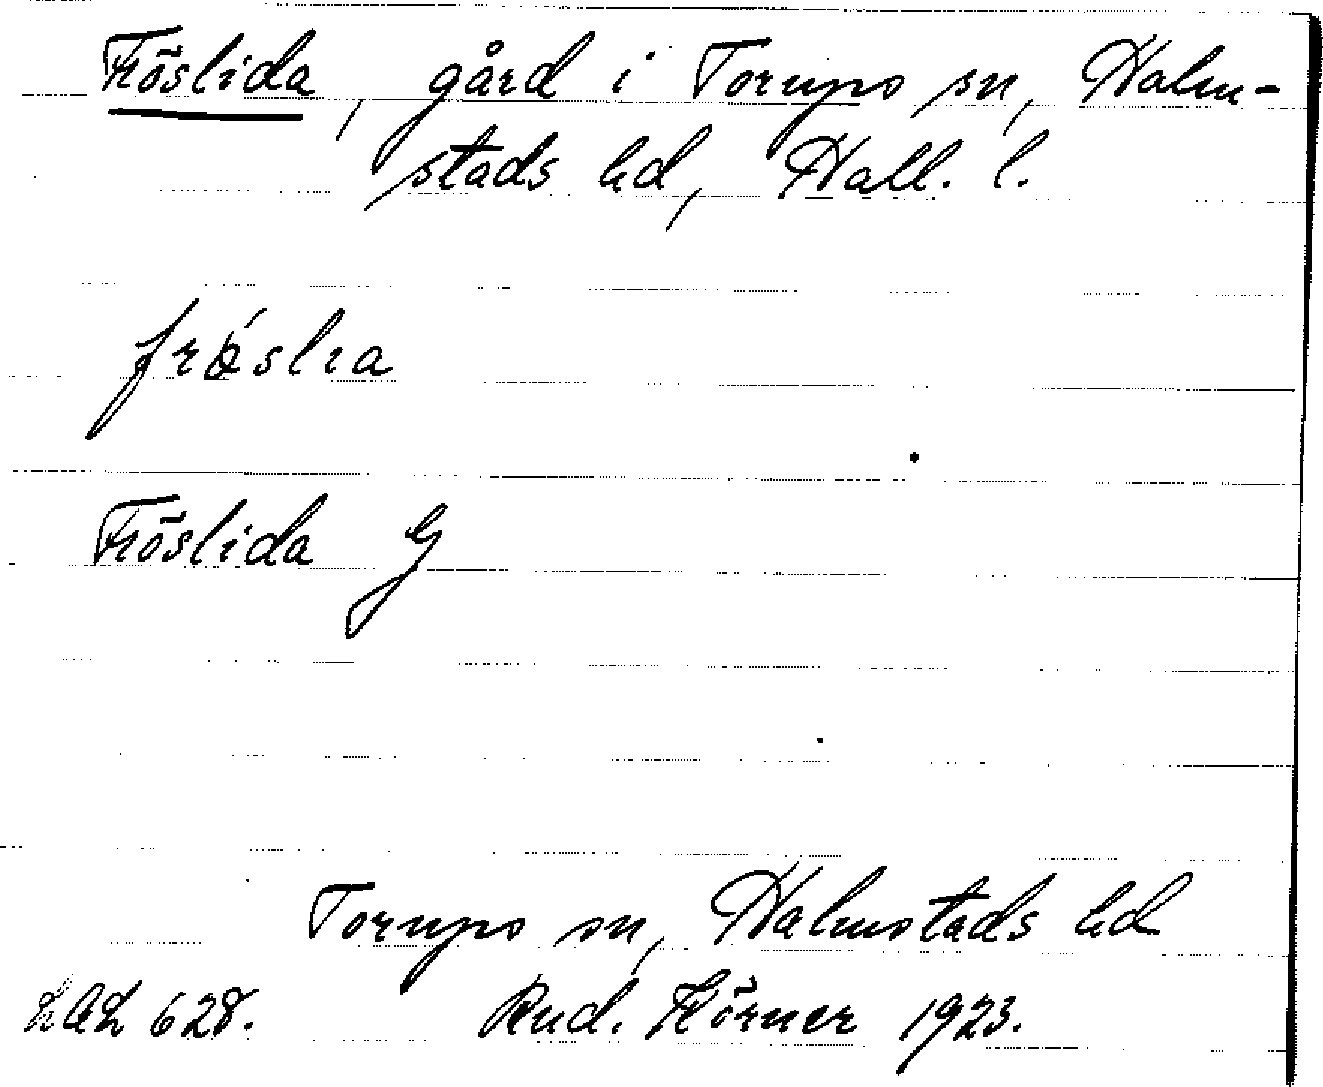 Fröslida, gård i Torups sn, Halm-
stads hd, Hall. l.
frö́slıa
Fröslida G
Torups sn, Halmstads hd
LAL 628. Rud. Körner 1923.